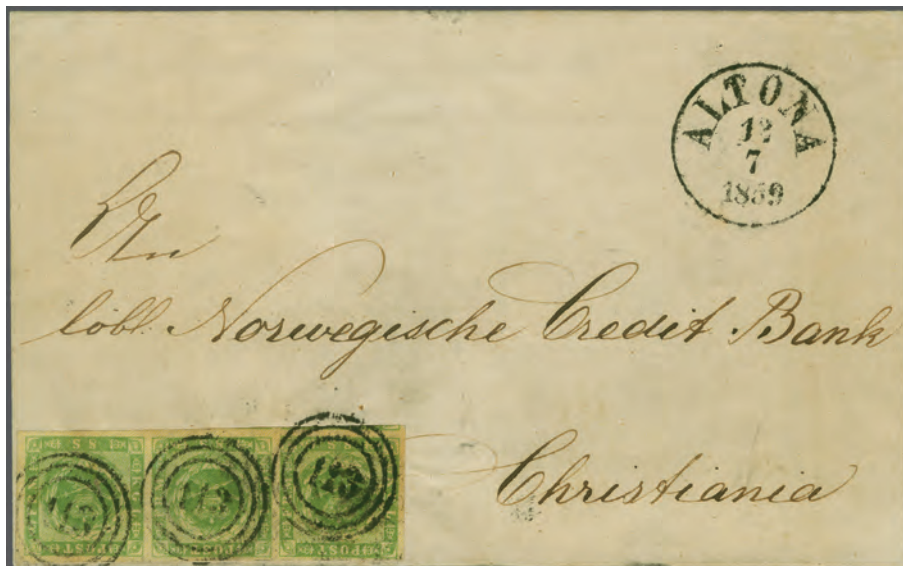 ALTONA
12
7
1859
An
löbl. Norwegische Credit Bank
Christiania
113